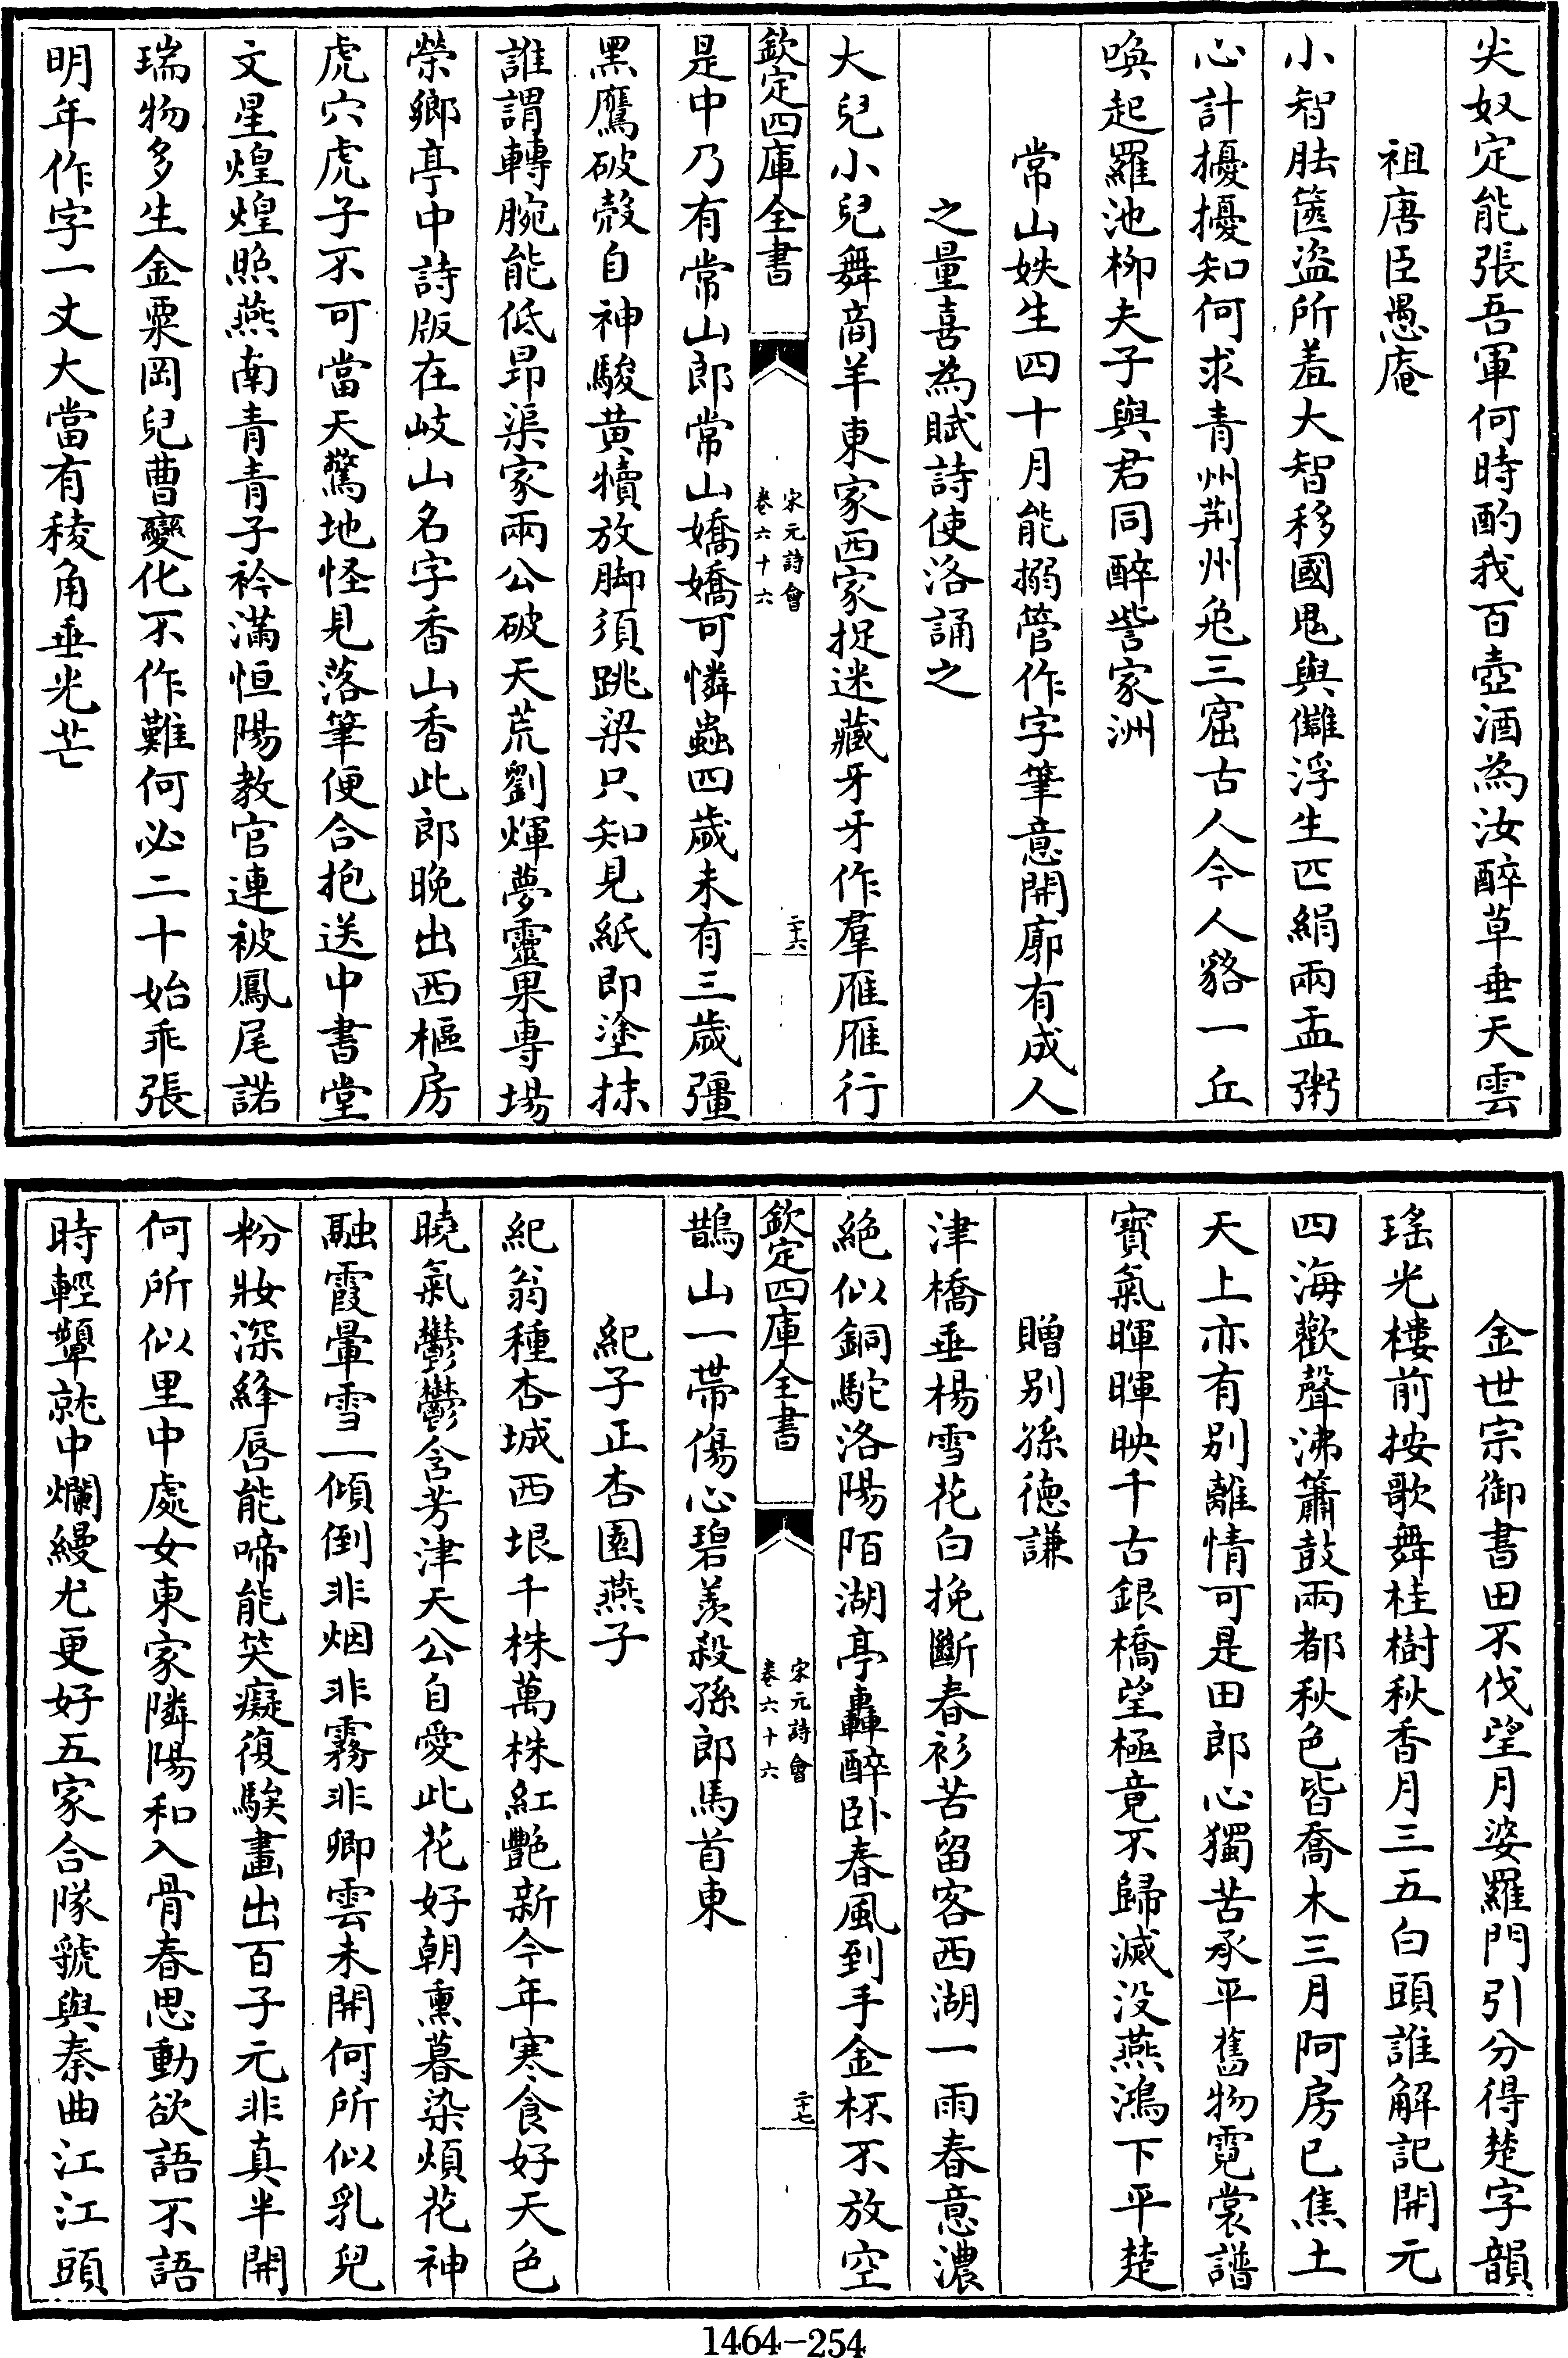 尖奴定能張吾軍何時酌我百壺酒為汝醉草垂天雲
祖唐臣愚庵
小智胠篋盜所羞大智移國鬼與讎浮生匹絹兩盂粥
心計擾擾知何求青州荆州兔三窟古人今人貉一丘
喚起羅池柳夫子與君同醉訾家洲
常山姪生四十月能搦管作字筆意開廓有成人
之量喜為賦詩使洛誦之
大兒小兒舞商羊東家西家捉迷藏牙牙作羣雁雁行
欽定四庫全書
宋元詩會
卷六十六
二十六
是中乃有常山郎常山嬌嬌可憐蟲四歲未有三歲彊
黑鷹破殼自神駿黄犢放脚須跳梁只知見紙即塗抹
誰謂轉腕能低昂渠家兩公破天荒劉煇夢靈果專場
榮鄉亭中詩版在岐山名字香山香此郎晚出西樞房
虎穴虎子不可當天驚地怪見落筆便合抱送中書堂
文星煌煌照燕南青青子衿滿恒陽教官連被鳳尾諾
瑞物多生金粟岡兒曹變化不作難何必二十始乖張
明年作字一丈大當有稜角垂光芒
金世宗御書田不伐望月婆羅門引分得楚字韻
瑤光樓前按歌舞桂樹秋香月三五白頭誰解記開元
四海歡聲沸簫鼓兩都秋色皆喬木三月阿房已焦土
天上亦有别離情可是田郎心獨苦承平舊物霓裳譜
寶氣暉暉映千古銀橋望極竟不歸滅没燕鴻下平楚
贈别孫德謙
津橋垂楊雪花白挽斷春衫苦留客西湖一雨春意濃
絶似銅駝洛陽陌湖亭轟醉卧春風到手金杯不放空
欽定四庫全書
宋元詩會
卷六十六
二十七
鵲山一帶傷心碧羨殺孫郎馬首東
紀子正杏園燕子
紀翁種杏城西垠千株萬株紅艷新今年寒食好天色
曉氣鬱鬱含芳津天公自愛此花好朝熏暮染煩花神
融霞暈雪一傾倒非烟非霧非卿雲未開何所似乳兒
粉妝深絳唇能啼能笑癡復騃畫出百子元非真半開
何所似里中處女東家隣陽和入骨春思動欲語不語
時輕顰就中爛縵尤更好五家合隊虢與秦曲江江頭
1464-254